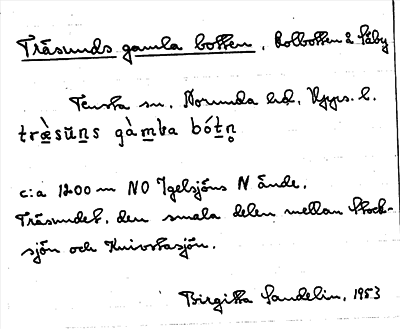 Träsunds gamla botten, Kolbotten å Säby
Tensta sn. Norunda hd. Upps. l.
træ̀sŭn̠s gàm̠ba bót̠n̥
c:a 1200 m NO Igelsjöns N ände.
Träsundet, den smala delen mellan Stock-
sjön och Knivstasjön.
Birgitta Sandelin, 1953